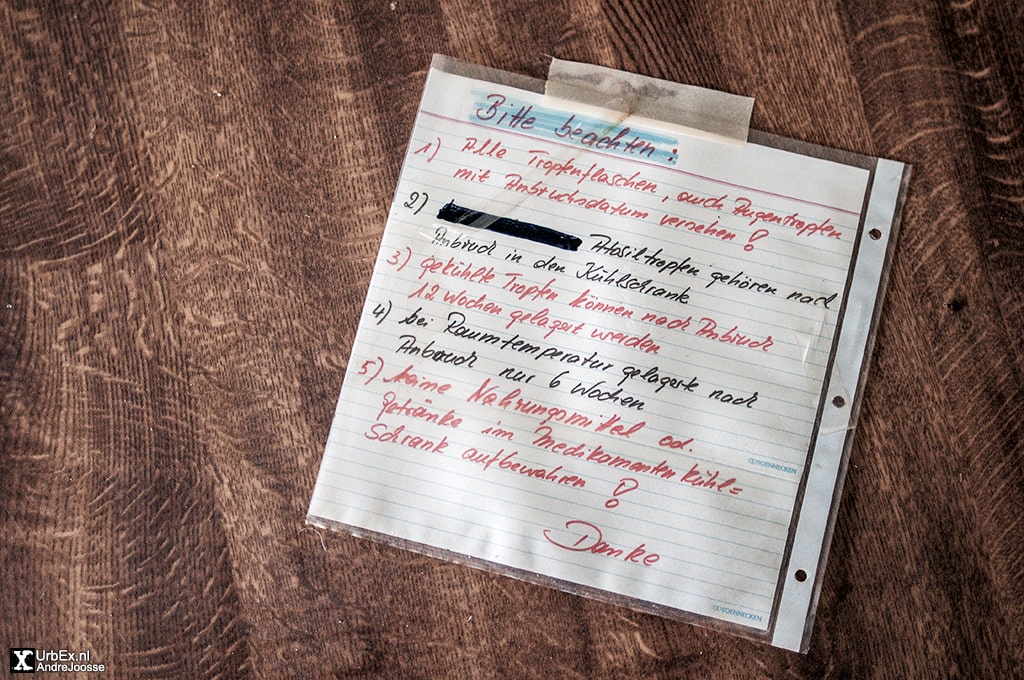 Bitte beachten:
1) Alle Tropfenflaschen, auch Augentropfen
mit Anbruchsdatum versehen!
2) Atosiltropfen gehören nach
Anbruch in den Kühlschrank
3) gekühlte Tropfen können nach Anbruch
12 Wochen gelagert werden
4) bei Raumtemperatur gelagerte nach
Anbruch nur 6 Wochen
5) keine Nahrungsmittel od.
Getränke im Medikamentenkühl=
schrank aufbewahren!
Danke
SOENNECKEN
SOENNECKEN
UrbEx.nl
AndreJoosse